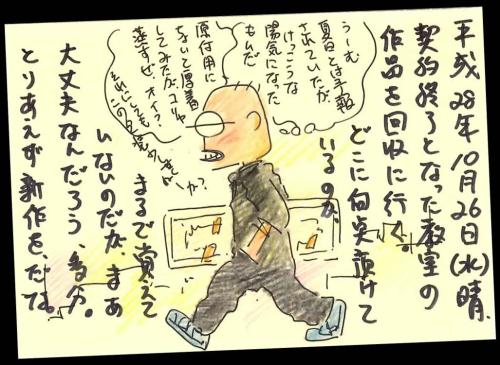 平成28年10月26日(水)晴
契約終了となった教室の
作品を回収に行く。
どこに向
けて
いるのか、
まるで覚えて
いないのだが、まあ
大丈夫なんだろう、多分。
とりあえず新作を、だな。
うーむ
夏日とは予報
されていたが
けっこうな
陽気になった
もんだ
原付用に
ないと厚着
してみたが、コリャ
蒸すぜ、オイ?
それにしても
この
か?